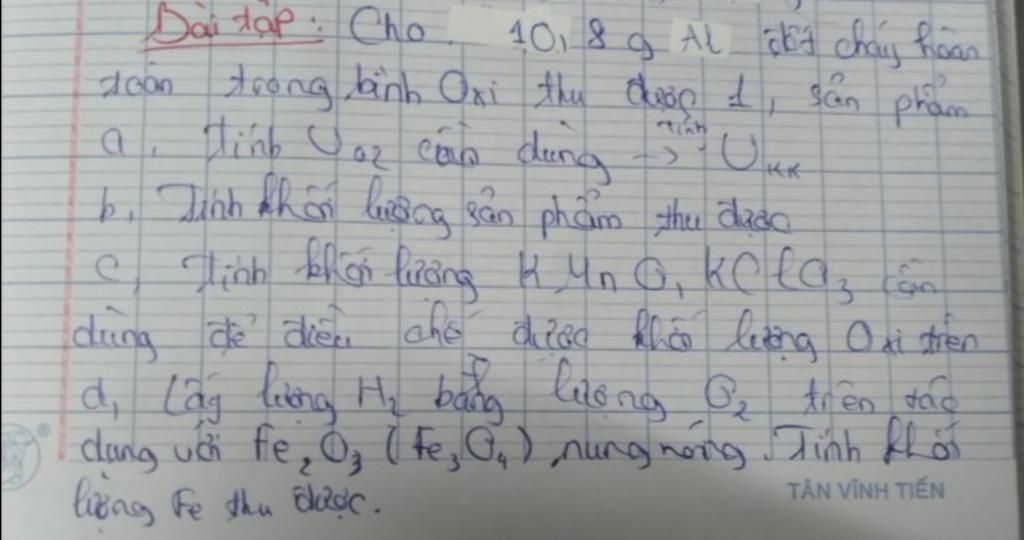 Bài tập: Cho 10,8 g Al đốt cháy hoàn
toàn trong bình Oxi thu được 1, sản phẩm
a, Tính VO2 cần dùng -> Tính VKK
b, Tính khối lượng sản phẩm thu được
c, Tính khối lượng KMnO, KClO3 cần
dùng để điều chế được khối lượng Oxi trên
d, Lấy lượng H2 bằng lượng O2 trên tác
dụng với Fe2O3 (Fe3O4) nung nóng. Tính khối
lượng Fe thu được.
TÂN VĨNH TIẾN